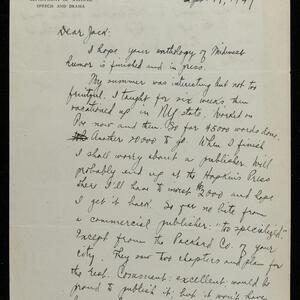 SPEECH AND DRAMA
Dear Jack:
I hope your anthology of Midwest
humor is finished and in press.
My summer was interesting but not too
fruitful. I taught for six weeks, then
vacationed up in NY state. Worked on
Poe now and then. So far 45000 words done.
Another 30000 to go. When I finish
I shall worry about a publisher. Will
probably end up at the Hopkins Press
where I'll have to invest $2000 and hope
I get it back. So far no bite from
a commercial publisher - "too specialized".
Except from the Packard Co. of your
city. They saw two chapters and plan for
the rest. Comment: excellent, would be
proud to publish it, but it would have